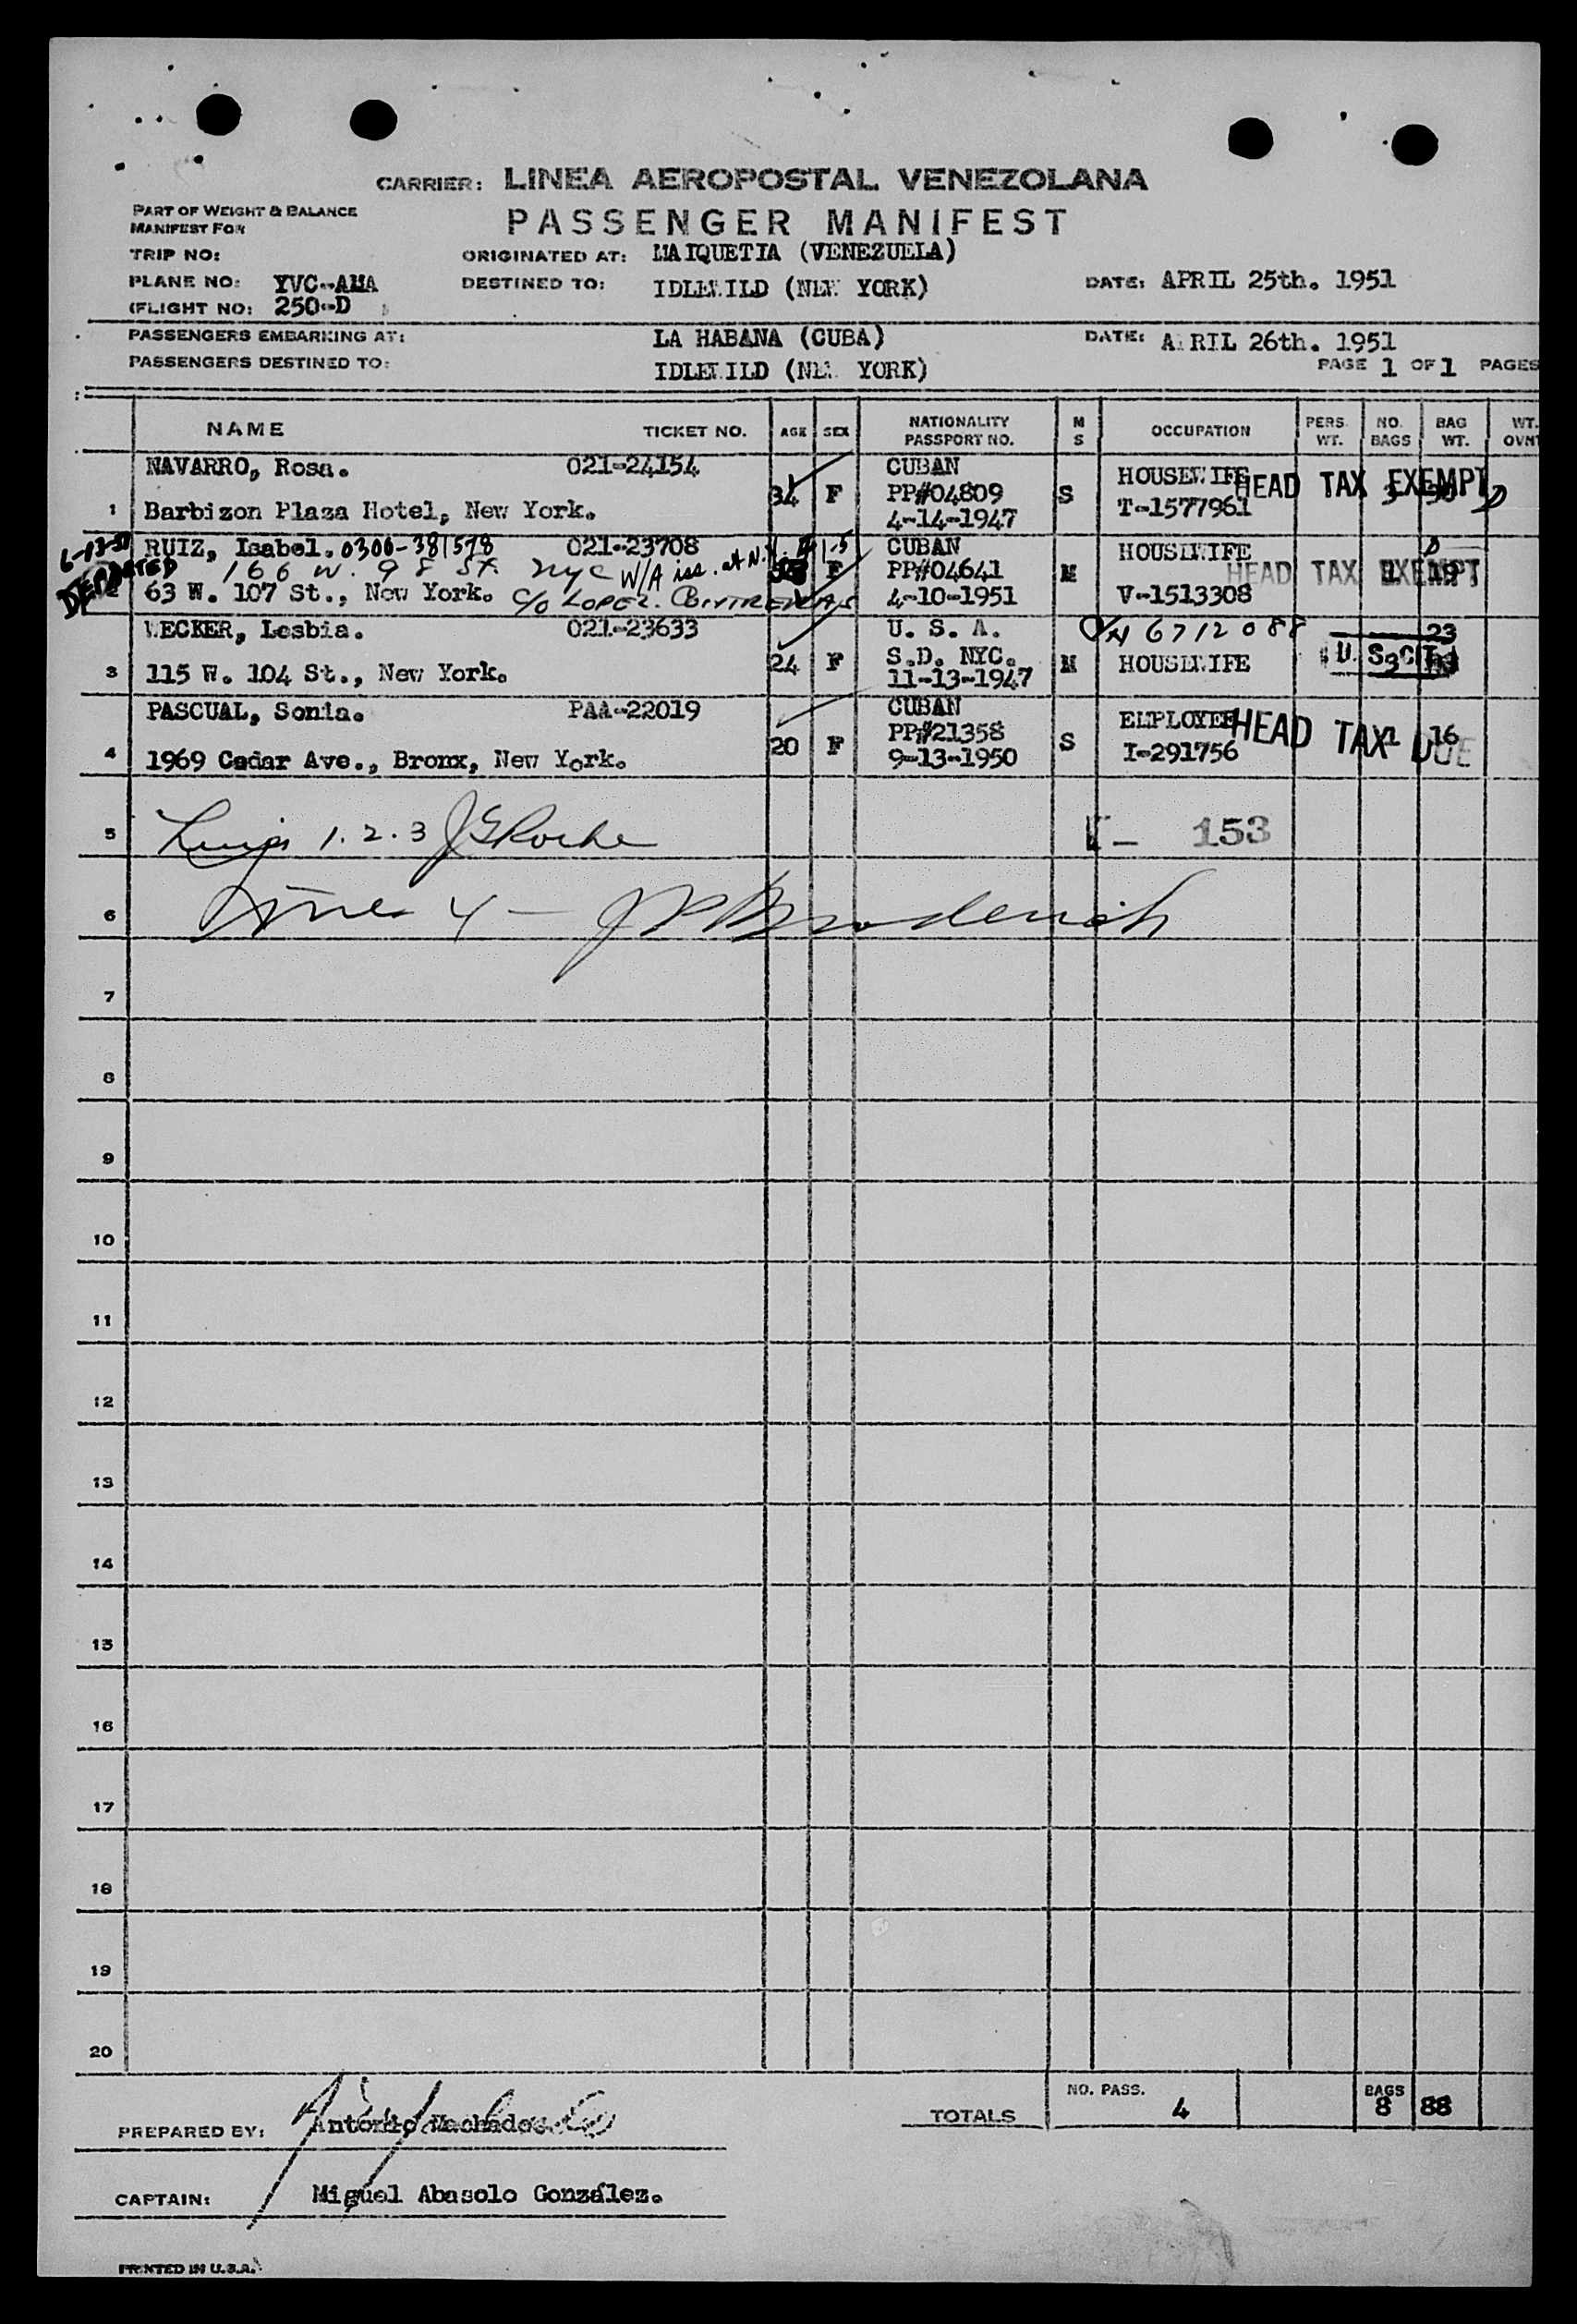 CARRIER: LINEA AEROPOSTAL VENEZOLANA
PART OF WEIGHT & BALANCE
MANIFEST FOR
PASSENGER MANIFEST
TRIP NO:
ORIGINATED AT: MAIQUETIA (VENEZUELA)
PLANE NO: YVC-AMA
DESTINED TO: IDLEWILD (NEW YORK)
DATE: APRIL 25th. 1951
(FLIGHT NO: 250-D
PASSENGERS EMBARKING AT: LA HABANA (CUBA)
DATE: APRIL 26th. 1951
PASSENGERS DESTINED TO: IDLEWILD (NEW YORK)
PAGE 1 OF 1 PAGES
NAME TICKET NO. AGE SEX NATIONALITY PASSPORT NO. M S OCCUPATION PERS. WT. NO. BAGS BAG WT. WT. OVNT
NAVARRO, Rosa. 021-24154 CUBAN
HOUSEWIFE HEAD TAX EXEMPT
1 Barbizon Plaza Hotel, New York. 34 F PP#04809 S T-1577961
4-14-1947
6-13-51 RUIZ, Isabel. 0300-381578 021-23708 CUBAN HOUSEWIFE
DEPARTED 166 W. 98 St. NYC W/A iss. at N.Y. F PP#04641 M HEAD TAX EXEMPT
2 63 W. 107 St., New York. C/O LOPEZ. 4-10-1951 V-1513308
WECKER, Lesbia. 021-23633 U. S. A. 6712088 23
3 115 W. 104 St., New York. 24 F S.D. NYC. M HOUSEWIFE U.S. CIT.
11-13-1947
PASCUAL, Sonia. PAA-22019 CUBAN
EMPLOYEE HEAD TAX DUE
4 1969 Cedar Ave., Bronx, New York. 20 F PP#21358 S I-291756 1 16
9-13-1950
5 1. 2. 3 J G Roche 153
6 Line 4 —
7
8
9
10
11
12
13
14
15
16
17
18
19
20
TOTALS NO. PASS. 4 BAGS 8 88
PREPARED BY: Antonio Machado.
CAPTAIN: Miguel Abasolo González.
PRINTED IN U.S.A.